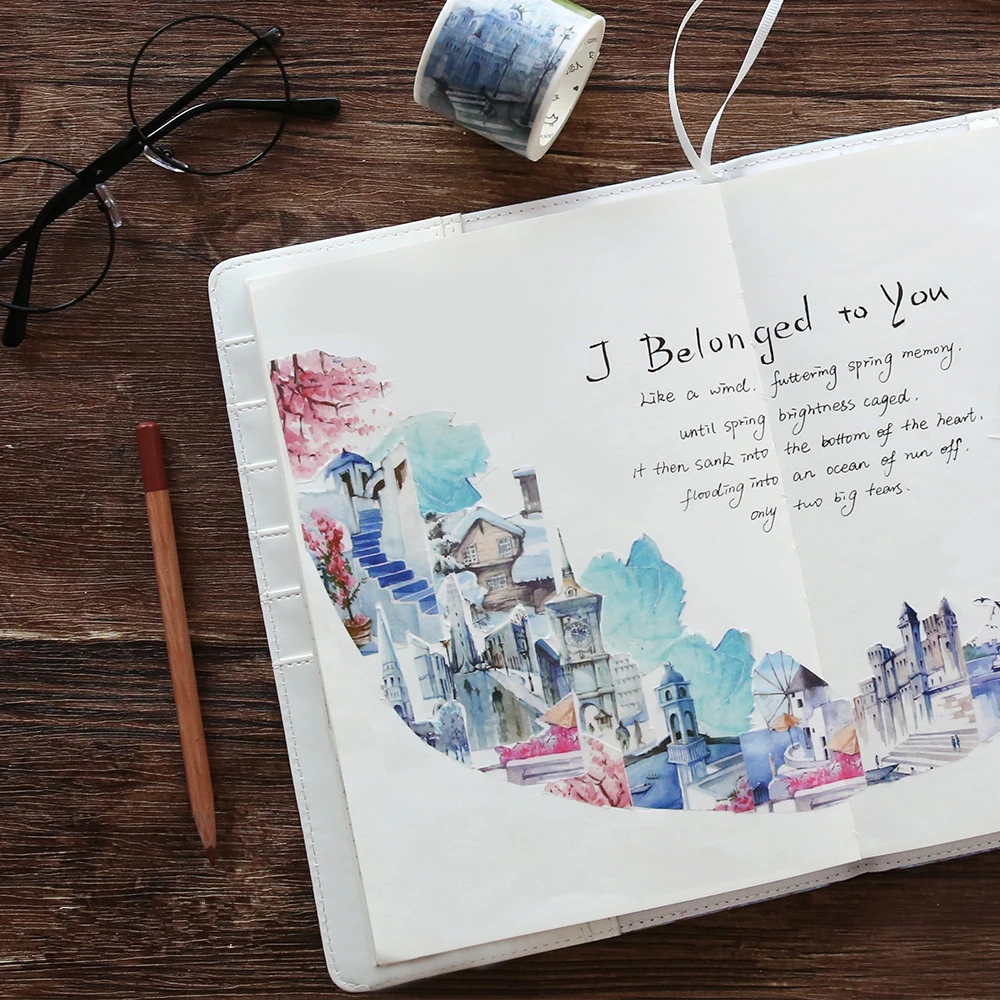 I Belonged to You
Like a wind. futtering spring memory.
until spring brightness caged.
it then sank into the bottom of the heart.
flooding into an ocean of run off.
only two big tears.